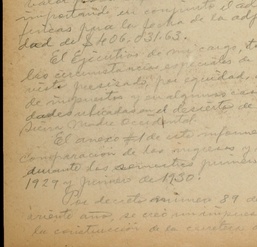 importando en conjunto el ad
fincas para la fecha de la adj
dad de $406,031.63.
El Ejecutivo de mi cargo, at
las circunstancias especiales de
por equidad,
de impuestos y en algunos casos
dades ubicadas en el desierto de
Sierra Madre Occidental.
El anexo #1 de este informe
comparación de los ingresos y
durante los semestres primero
1929 y primero de 1930.
Por decreto número 89 d
año, se creó un impues
la construcción de la carretera